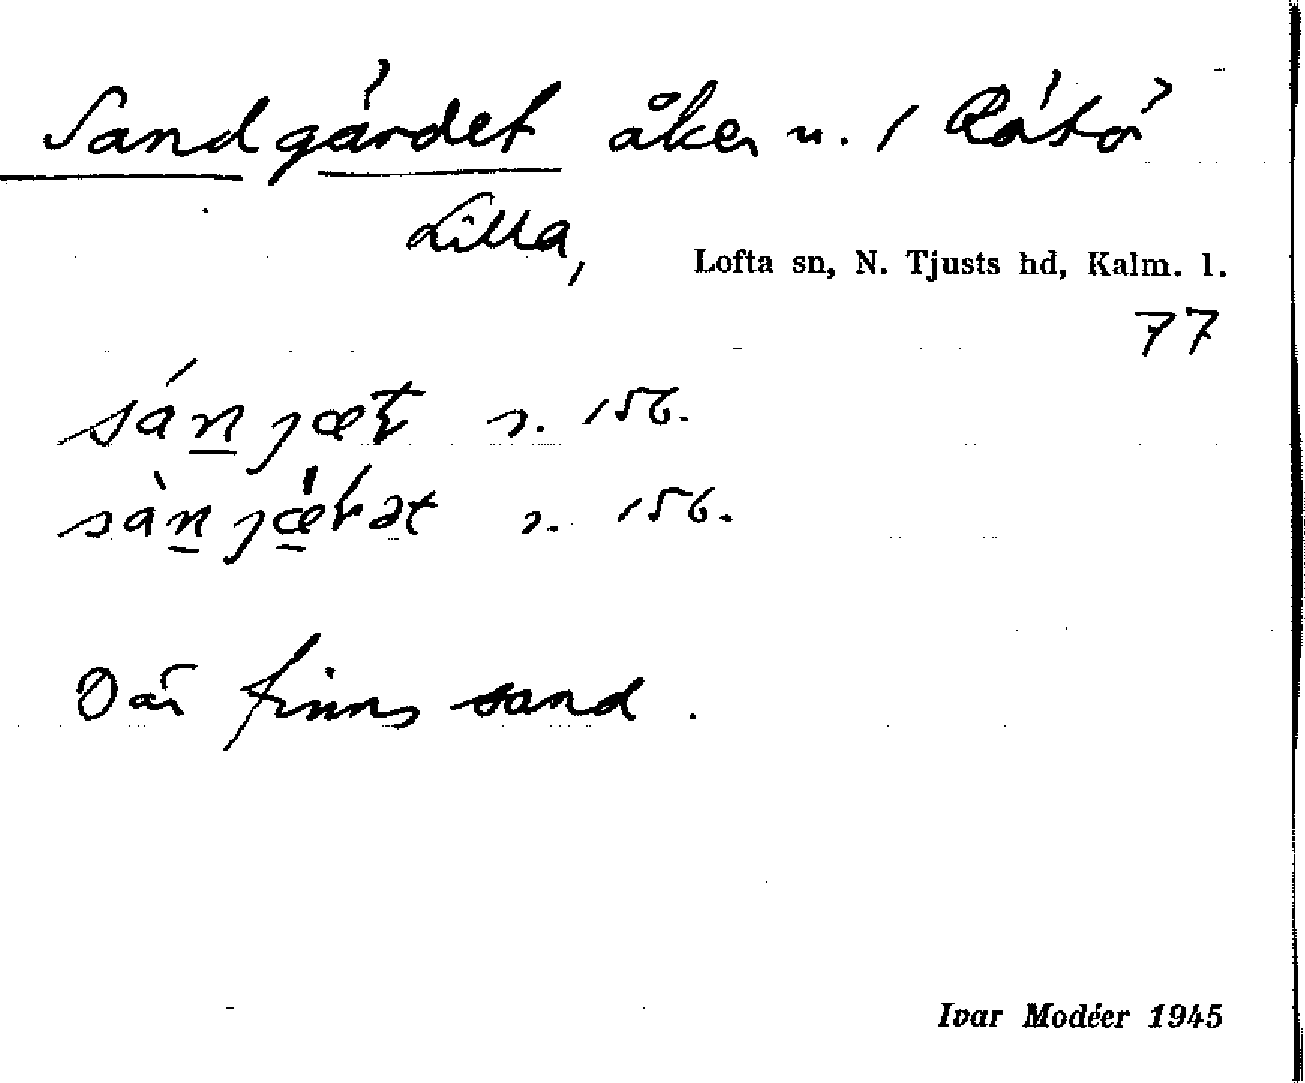 Sandgärdet åker u. / Råtö
Lilla,
Lofta sn, N. Tjusts hd, Kalm. l.
77
sánjæt s. 156.
sànjæ̀ṛət s. 156.
Där finns sand.
Ivar Modéer 1945